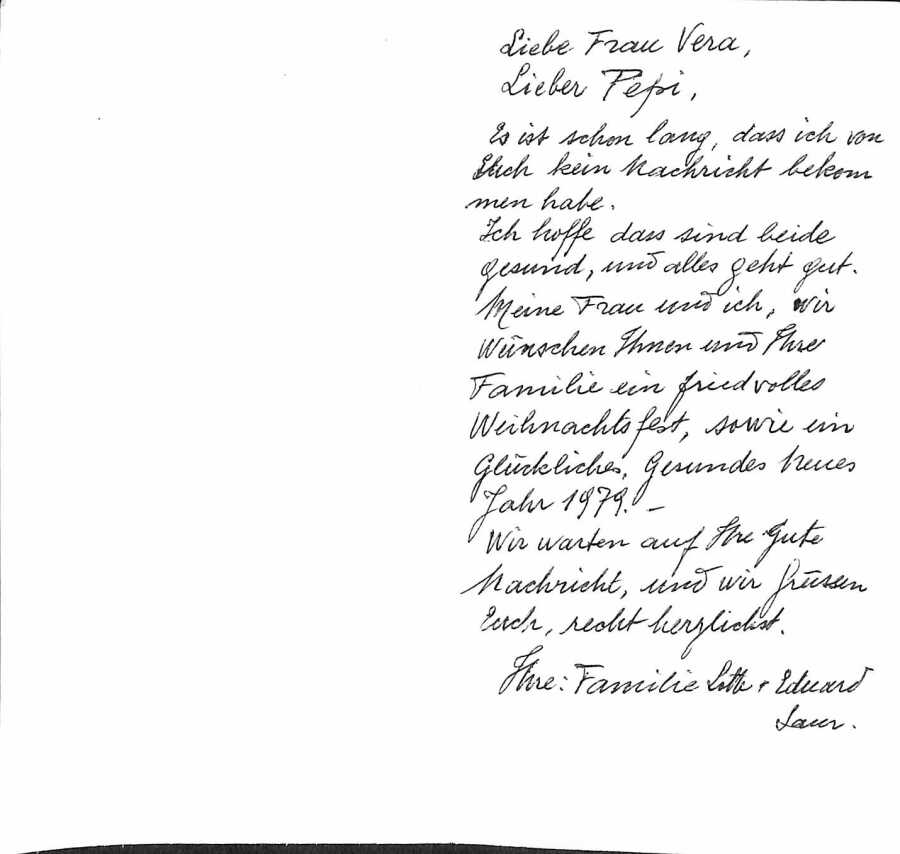 Liebe Frau Vera,
Lieber Pepi,
Es ist schon lang, dass ich von
Euch kein Nachricht bekom
men habe.
Ich hoffe dass sind beide
gesund, und alles geht gut.
Meine Frau und ich, wir
Wünschen Ihnen und Ihre
Familie ein friedvolles
Weihnachtsfest, sowie ein
Glückliches, Gesundes neues
Jahr 1979. –
Wir warten auf Ihre Gute
Nachricht, und wir grüssen
Euch, recht herzlichst.
Ihre: Familie + Eduard